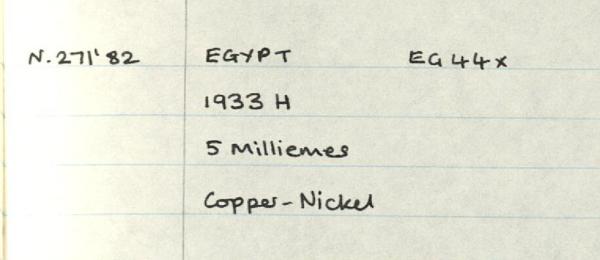 N.271'82 EGYPT EG44x
1933 H
5 Milliemes
Copper-Nickel